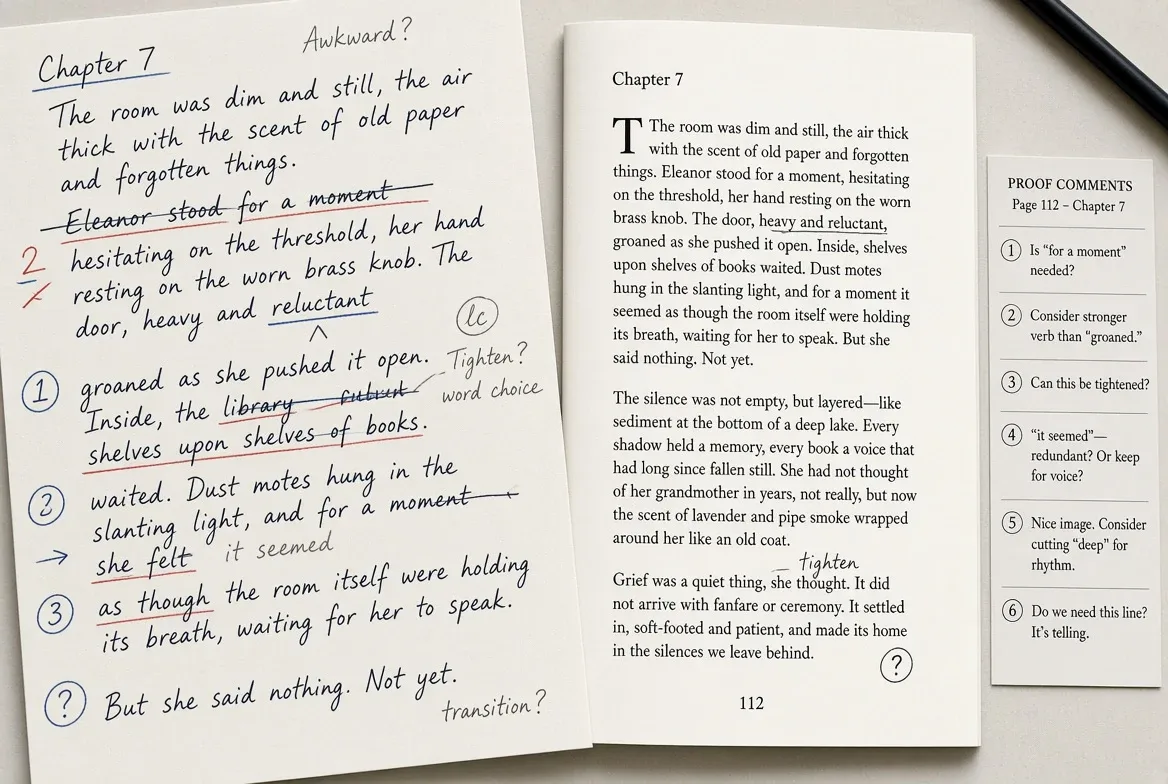 Awkward?
Chapter 7
The room was dim and still, the air
thick with the scent of old paper
and forgotten things.
Eleanor stood for a moment
2 hesitating on the threshold, her hand
resting on the worn brass knob. The
door, heavy and reluctant
lc
1 groaned as she pushed it open.
Tighten?
word choice
Inside, the library
shelves upon shelves of books.
2 waited. Dust motes hung in the
slanting light, and for a moment
→ she felt it seemed
3 as though the room itself were holding
its breath, waiting for her to speak.
? But she said nothing. Not yet.
transition?
Chapter 7
T The room was dim and still, the air thick
with the scent of old paper and forgotten
things. Eleanor stood for a moment, hesitating
on the threshold, her hand resting on the worn
brass knob. The door, heavy and reluctant,
groaned as she pushed it open. Inside, shelves
upon shelves of books waited. Dust motes
hung in the slanting light, and for a moment it
seemed as though the room itself were holding
its breath, waiting for her to speak. But she
said nothing. Not yet.
The silence was not empty, but layered—like
sediment at the bottom of a deep lake. Every
shadow held a memory, every book a voice that
had long since fallen still. She had not thought
of her grandmother in years, not really, but now
the scent of lavender and pipe smoke wrapped
around her like an old coat.
tighten
Grief was a quiet thing, she thought. It did
not arrive with fanfare or ceremony. It settled
in, soft-footed and patient, and made its home
in the silences we leave behind.
?
112
PROOF COMMENTS
Page 112 – Chapter 7
1 Is “for a moment”
needed?
2 Consider stronger
verb than “groaned.”
3 Can this be tightened?
4 “it seemed”—
redundant? Or keep
for voice?
5 Nice image. Consider
cutting “deep” for
rhythm.
6 Do we need this line?
It’s telling.